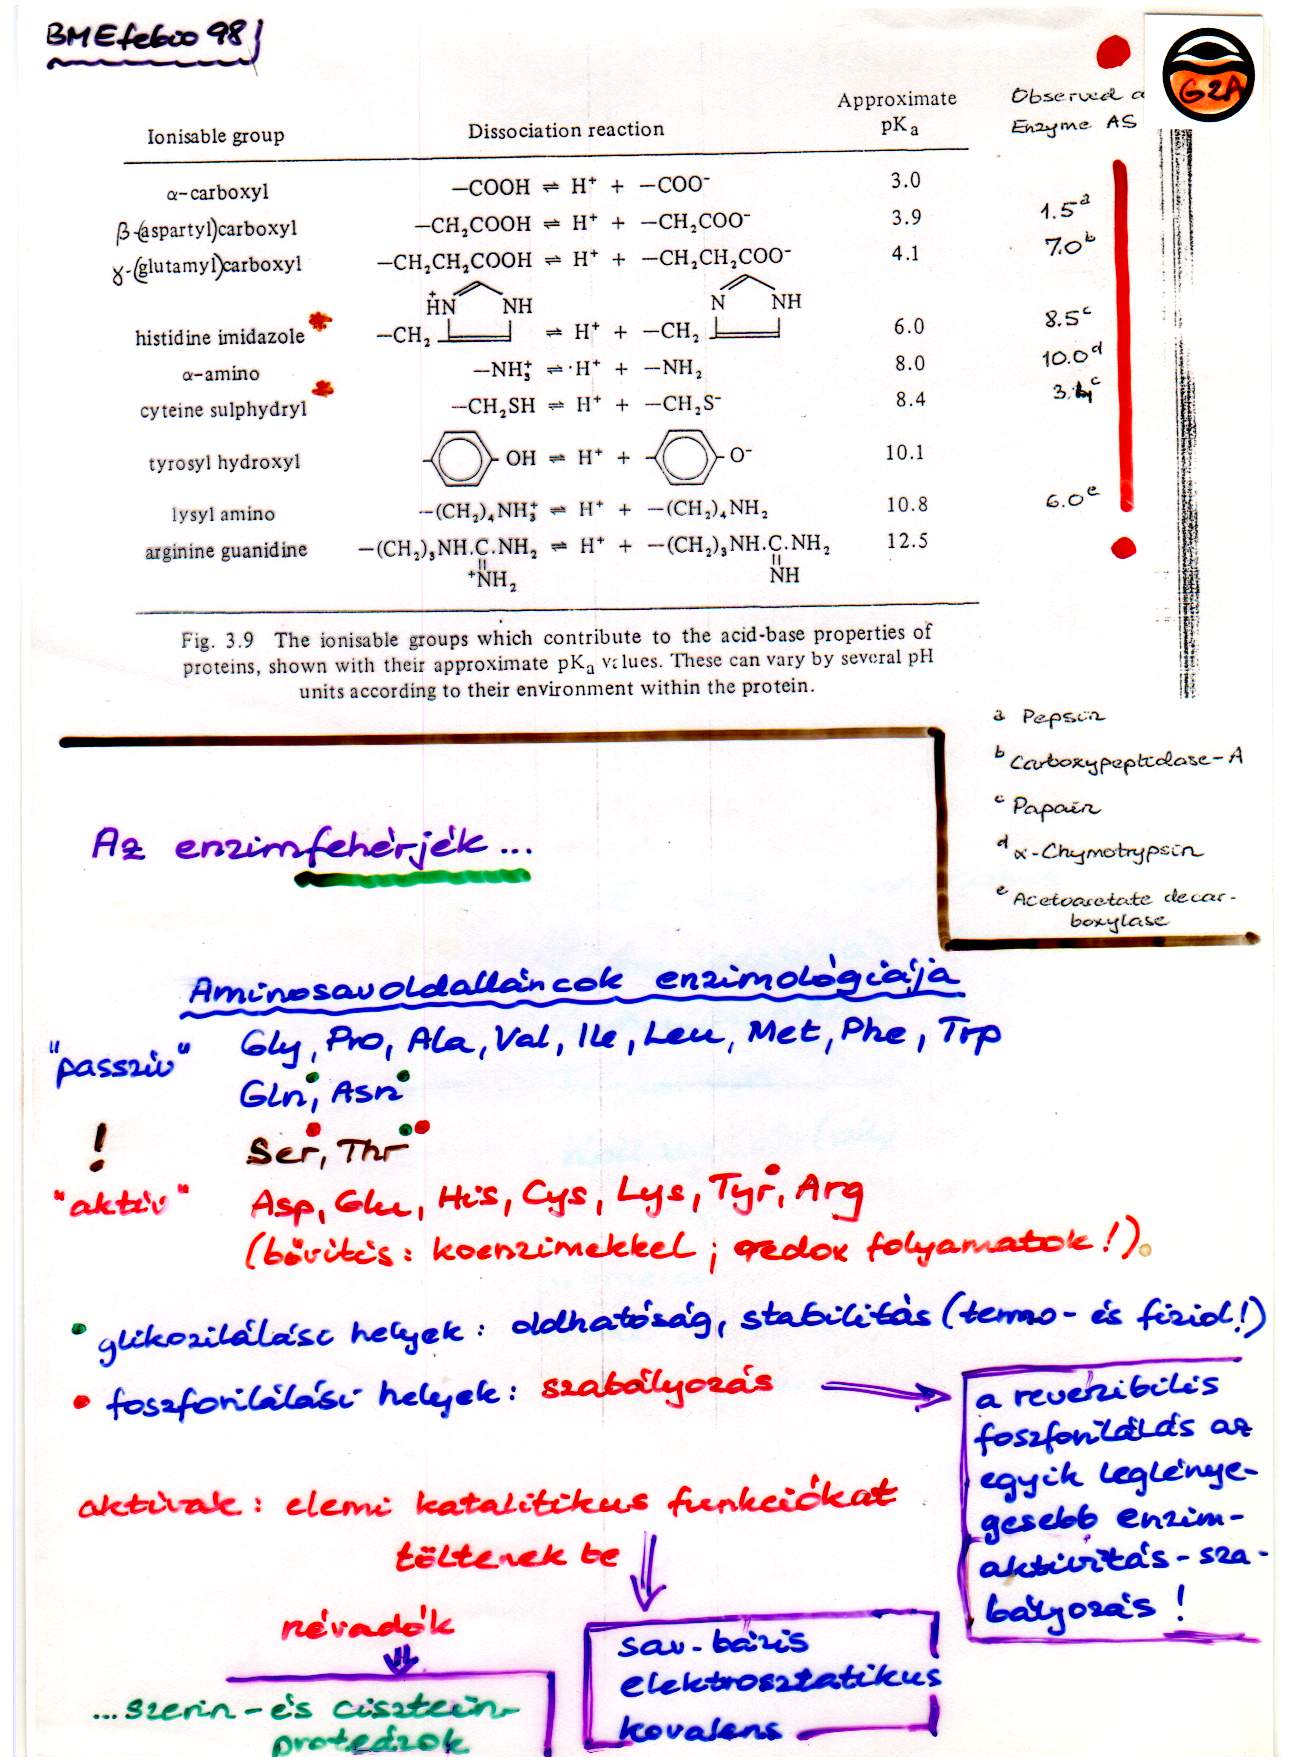 BMEfebio 98
G2A
Observed
Enzyme AS
Ionisable group Dissociation reaction Approximate pKa
α-carboxyl —COOH ⇌ H⁺ + —COO⁻ 3.0
β-(aspartyl)carboxyl —CH₂COOH ⇌ H⁺ + —CH₂COO⁻ 3.9 1.5ᵃ
γ-(glutamyl)carboxyl —CH₂CH₂COOH ⇌ H⁺ + —CH₂CH₂COO⁻ 4.1 7.0ᵇ
HN⁺ NH N NH
histidine imidazole —CH₂ ⇌ H⁺ + —CH₂ 6.0 8.5ᶜ
α-amino —NH₃⁺ ⇌ H⁺ + —NH₂ 8.0 10.0ᵈ
cyteine sulphydryl —CH₂SH ⇌ H⁺ + —CH₂S⁻ 8.4
tyrosyl hydroxyl OH ⇌ H⁺ + O⁻ 10.1
lysyl amino —(CH₂)₄NH₃⁺ ⇌ H⁺ + —(CH₂)₄NH₂ 10.8 6.0ᵉ
arginine guanidine —(CH₂)₃NH.C.NH₂ ⇌ H⁺ + —(CH₂)₃NH.C.NH₂ 12.5
⁺NH₂ NH
Fig. 3.9 The ionisable groups which contribute to the acid-base properties of
proteins, shown with their approximate pKa values. These can vary by several pH
units according to their environment within the protein.
a Pepsin
b Carboxypeptidase-A
c Papain
d α-Chymotrypsin
e Acetoacetate decar-
boxylase
Az enzimfehérjék...
Aminosavoldalláncok enzimológiája
"passzív" Gly, Pro, Ala, Val, Ile, Leu, Met, Phe, Trp
Gln, Asn
! Ser, Thr
"aktív" Asp, Glu, His, Cys, Lys, Tyr, Arg
(bővítés: koenzimekkel; redox folyamatok!).
• glikozilálási helyek: oldhatóság, stabilitás (termo- és fiziol!)
• foszforilálási helyek: szabályozás
a reverzibilis
foszforilálás az
egyik leglénye-
gesebb enzim-
aktivitás-sza-
bályozás!
aktívak: elemi katalitikus funkciókat
töltenek be
névadók
...szerin- és cisztein-
proteázok
sav-bázis
elektrosztatikus
kovalens